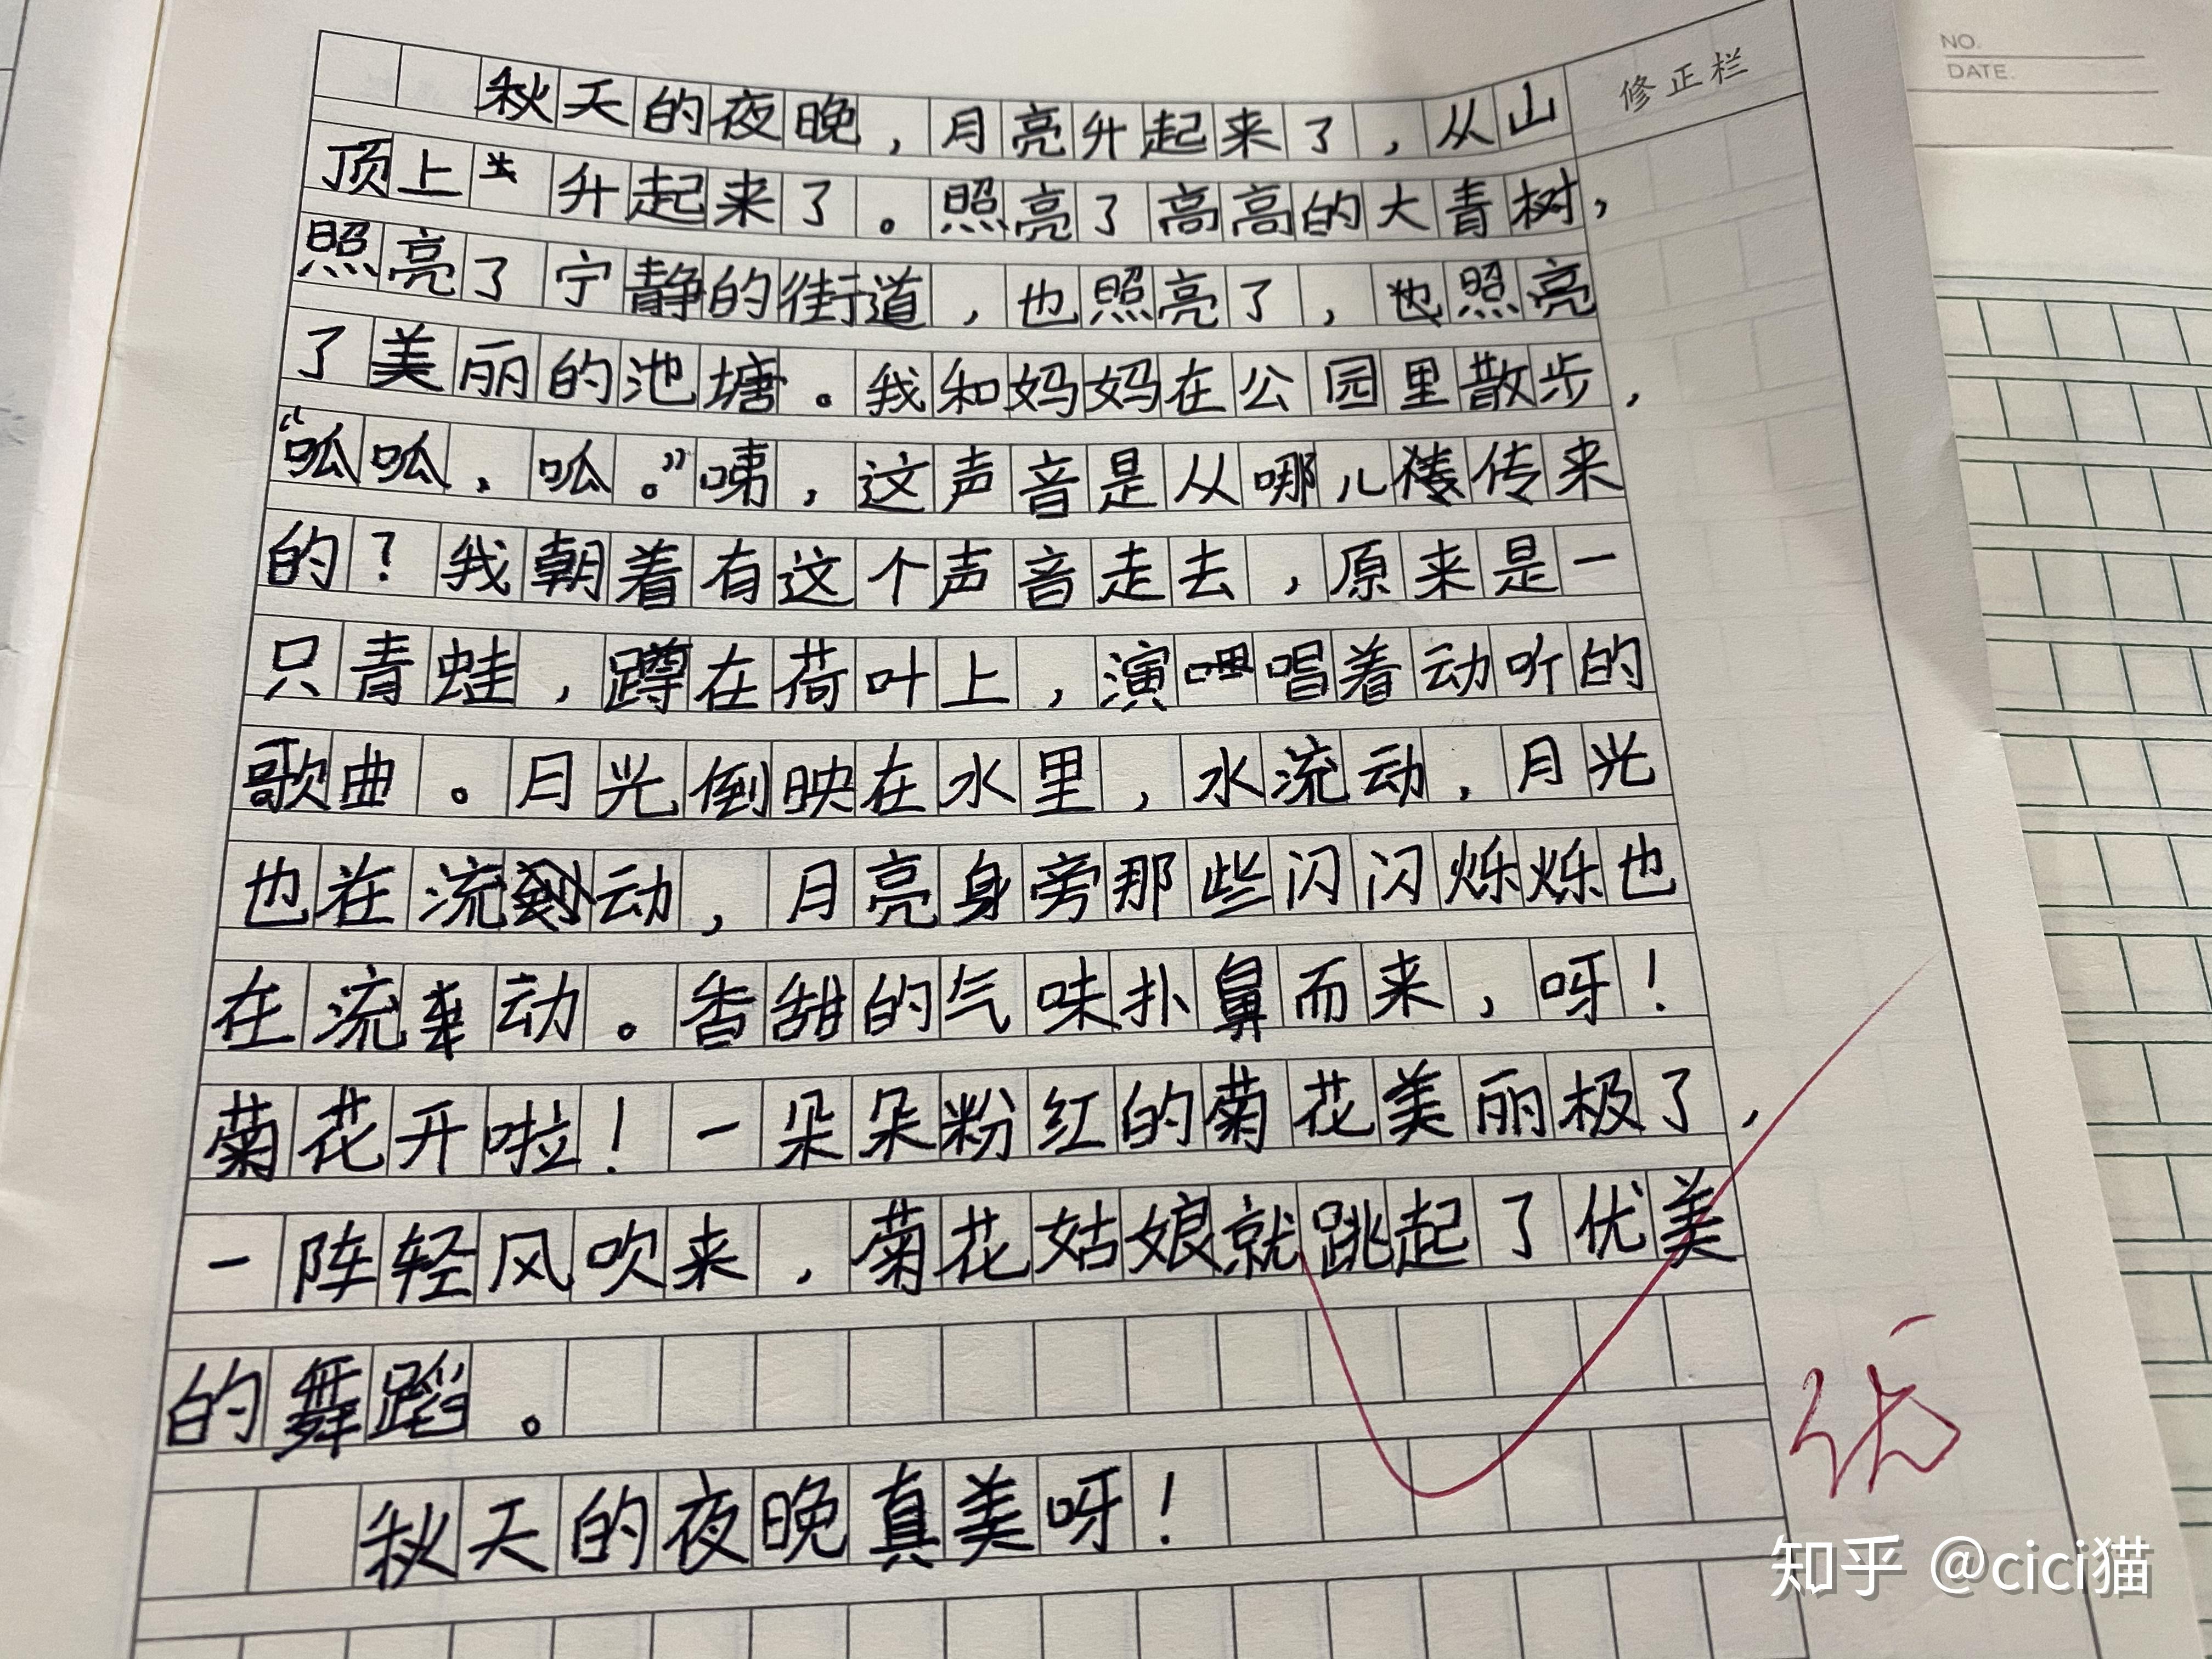 NO.
DATE:
修正栏
秋天的夜晚，月亮升起来了，从山
顶上升起来了。照亮了高高的大青树，
照亮了宁静的街道，也照亮了，也照亮
了美丽的池塘。我和妈妈在公园里散步，
“呱呱，呱。”咦，这声音是从哪儿传来
的？我朝着有这个声音走去，原来是一
只青蛙，蹲在荷叶上，演唱着动听的
歌曲。月光倒映在水里，水流动，月光
也在流动，月亮身旁那些闪闪烁烁也
在流动。香甜的气味扑鼻而来，呀！
菊花开啦！一朵朵粉红的菊花美丽极了，
一阵轻风吹来，菊花姑娘就跳起了优美
的舞蹈。
秋天的夜晚真美呀！
知乎 @cici猫